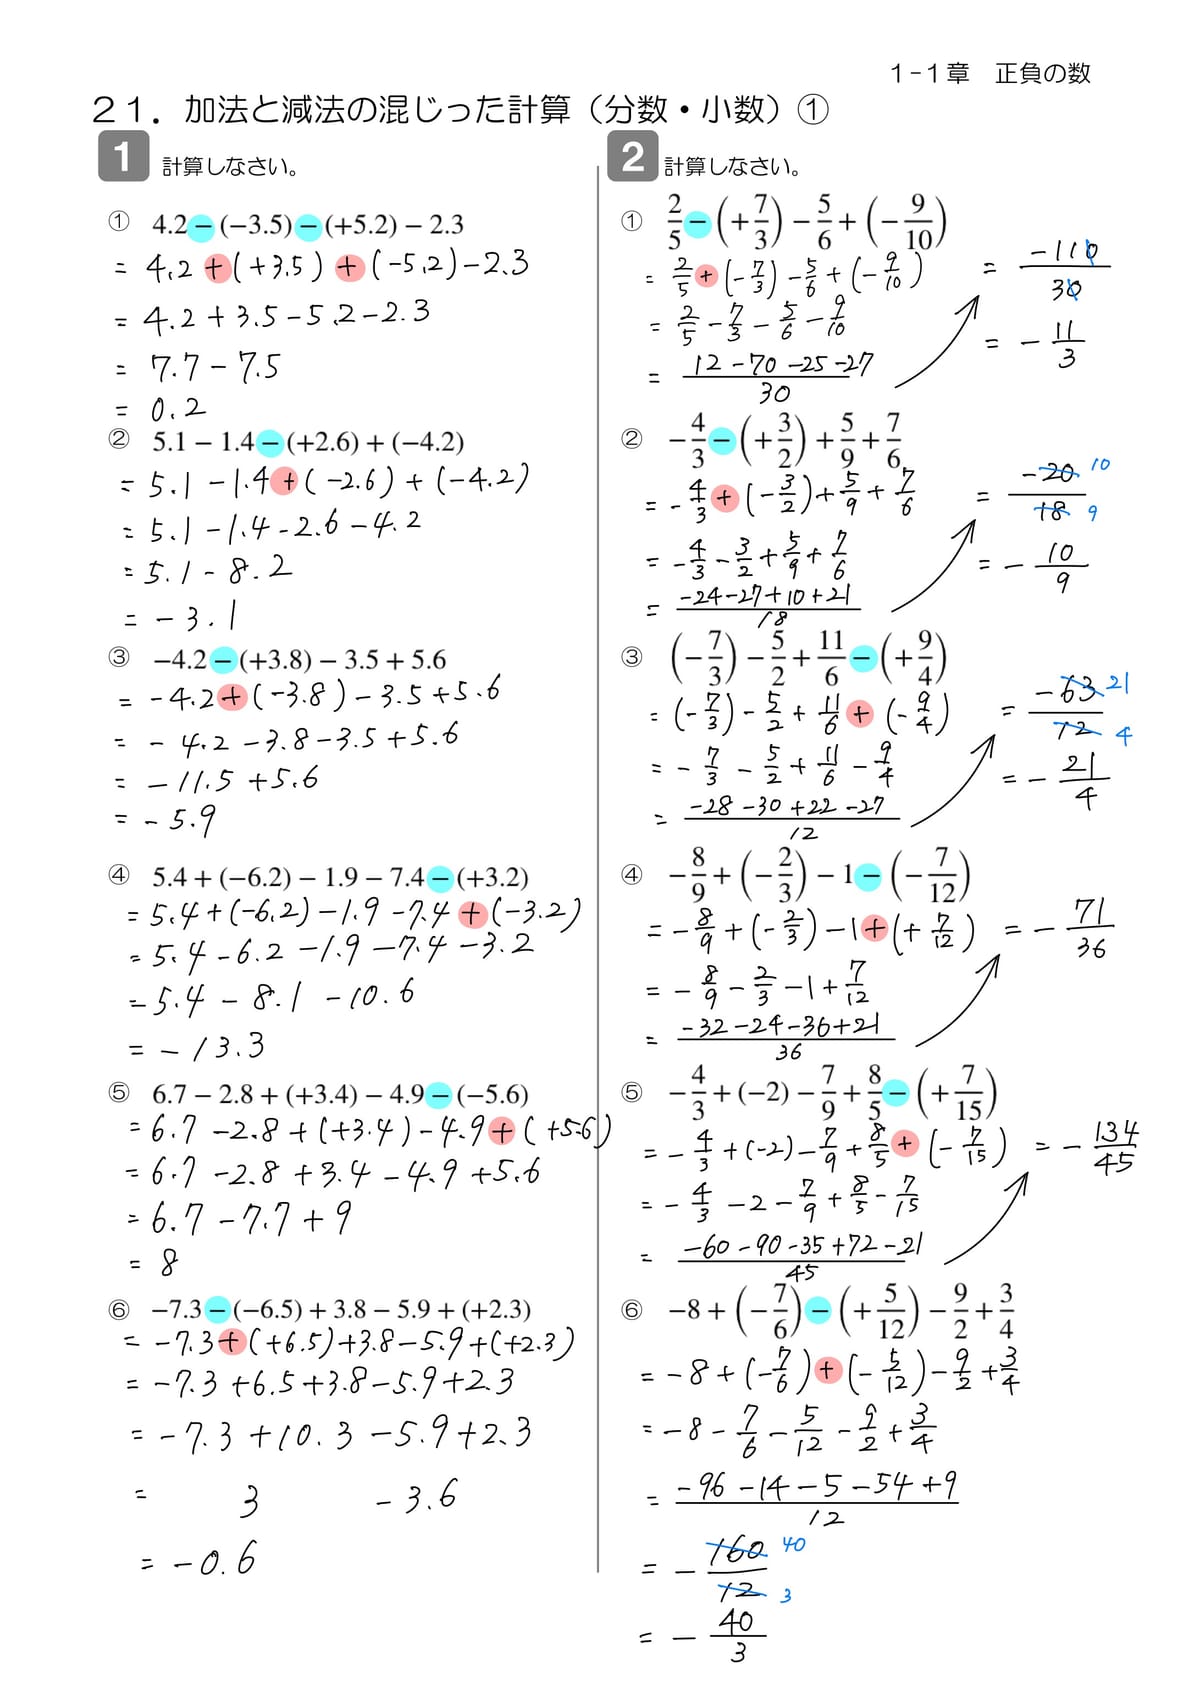 1-1章　正負の数
21．加法と減法の混じった計算（分数・小数）①
1 計算しなさい。
① 4.2−(−3.5)−(+5.2)−2.3
= 4.2+(+3.5)+(-5.2)-2.3
= 4.2+3.5-5.2-2.3
= 7.7-7.5
= 0.2
② 5.1−1.4−(+2.6)+(−4.2)
= 5.1-1.4+(-2.6)+(-4.2)
= 5.1-1.4-2.6-4.2
= 5.1-8.2
= -3.1
③ −4.2−(+3.8)−3.5+5.6
= -4.2+(-3.8)-3.5+5.6
= -4.2-3.8-3.5+5.6
= -11.5+5.6
= -5.9
④ 5.4+(−6.2)−1.9−7.4−(+3.2)
= 5.4+(-6.2)-1.9-7.4+(-3.2)
= 5.4-6.2-1.9-7.4-3.2
= 5.4-8.1-10.6
= -13.3
⑤ 6.7−2.8+(+3.4)−4.9−(−5.6)
= 6.7-2.8+(+3.4)-4.9+(+5.6)
= 6.7-2.8+3.4-4.9+5.6
= 6.7-7.7+9
= 8
⑥ −7.3−(−6.5)+3.8−5.9+(+2.3)
= -7.3+(+6.5)+3.8-5.9+(+2.3)
= -7.3+6.5+3.8-5.9+2.3
= -7.3+10.3-5.9+2.3
= 3 -3.6
= -0.6
2 計算しなさい。
① 2/5−(+7/3)−5/6+(−9/10)
= 2/5+(-7/3)-5/6+(-9/10)
= 2/5-7/3-5/6-9/10
= (12-70-25-27)/30
= -110/30
= -11/3
② −4/3−(+3/2)+5/9+7/6
= -4/3+(-3/2)+5/9+7/6
= -4/3-3/2+5/9+7/6
= (-24-27+10+21)/18
= -20/18 10 9
= -10/9
③ (−7/3)−5/2+11/6−(+9/4)
= (-7/3)-5/2+11/6+(-9/4)
= -7/3-5/2+11/6-9/4
= (-28-30+22-27)/12
= -63/12 21 4
= -21/4
④ −8/9+(−2/3)−1−(−7/12)
= -8/9+(-2/3)-1+(+7/12)
= -8/9-2/3-1+7/12
= (-32-24-36+21)/36
= -71/36
⑤ −4/3+(−2)−7/9+8/5−(+7/15)
= -4/3+(-2)-7/9+8/5+(-7/15)
= -4/3-2-7/9+8/5-7/15
= (-60-90-35+72-21)/45
= -134/45
⑥ −8+(−7/6)−(+5/12)−9/2+3/4
= -8+(-7/6)+(-5/12)-9/2+3/4
= -8-7/6-5/12-9/2+3/4
= (-96-14-5-54+9)/12
= -160/12 40 3
= -40/3